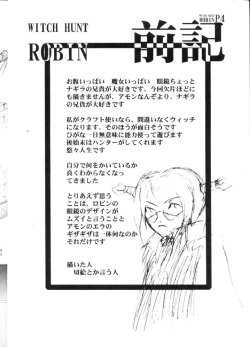 WITCH HUNT
ROBIN
前記
WITCH HUNT
ROBIN P4
お腹いっぱい　魔女いっぱい　眼鏡ちょっと
ナギラの兄貴が大好きです、今回欠片ほどに
も描きませんが、アモンなんぞより、ナギラ
の兄貴が大好きです
私がクラフト使いなら、間違いなくウィッチ
になります、そのほうが面白そうです
ひがな一日無意味に能力使って遊びます
後始末はハンターがしてくれます
悠々人生です
自分で何をかいているか
良くわからなくなっ
てきました
とりあえず思う
ことは、ロビンの
眼鏡のデザインが
ムズイと言うことと
アモンのエラの
ギザギザは一体何なのか
それだけです
描いた人
切絵とか言う人